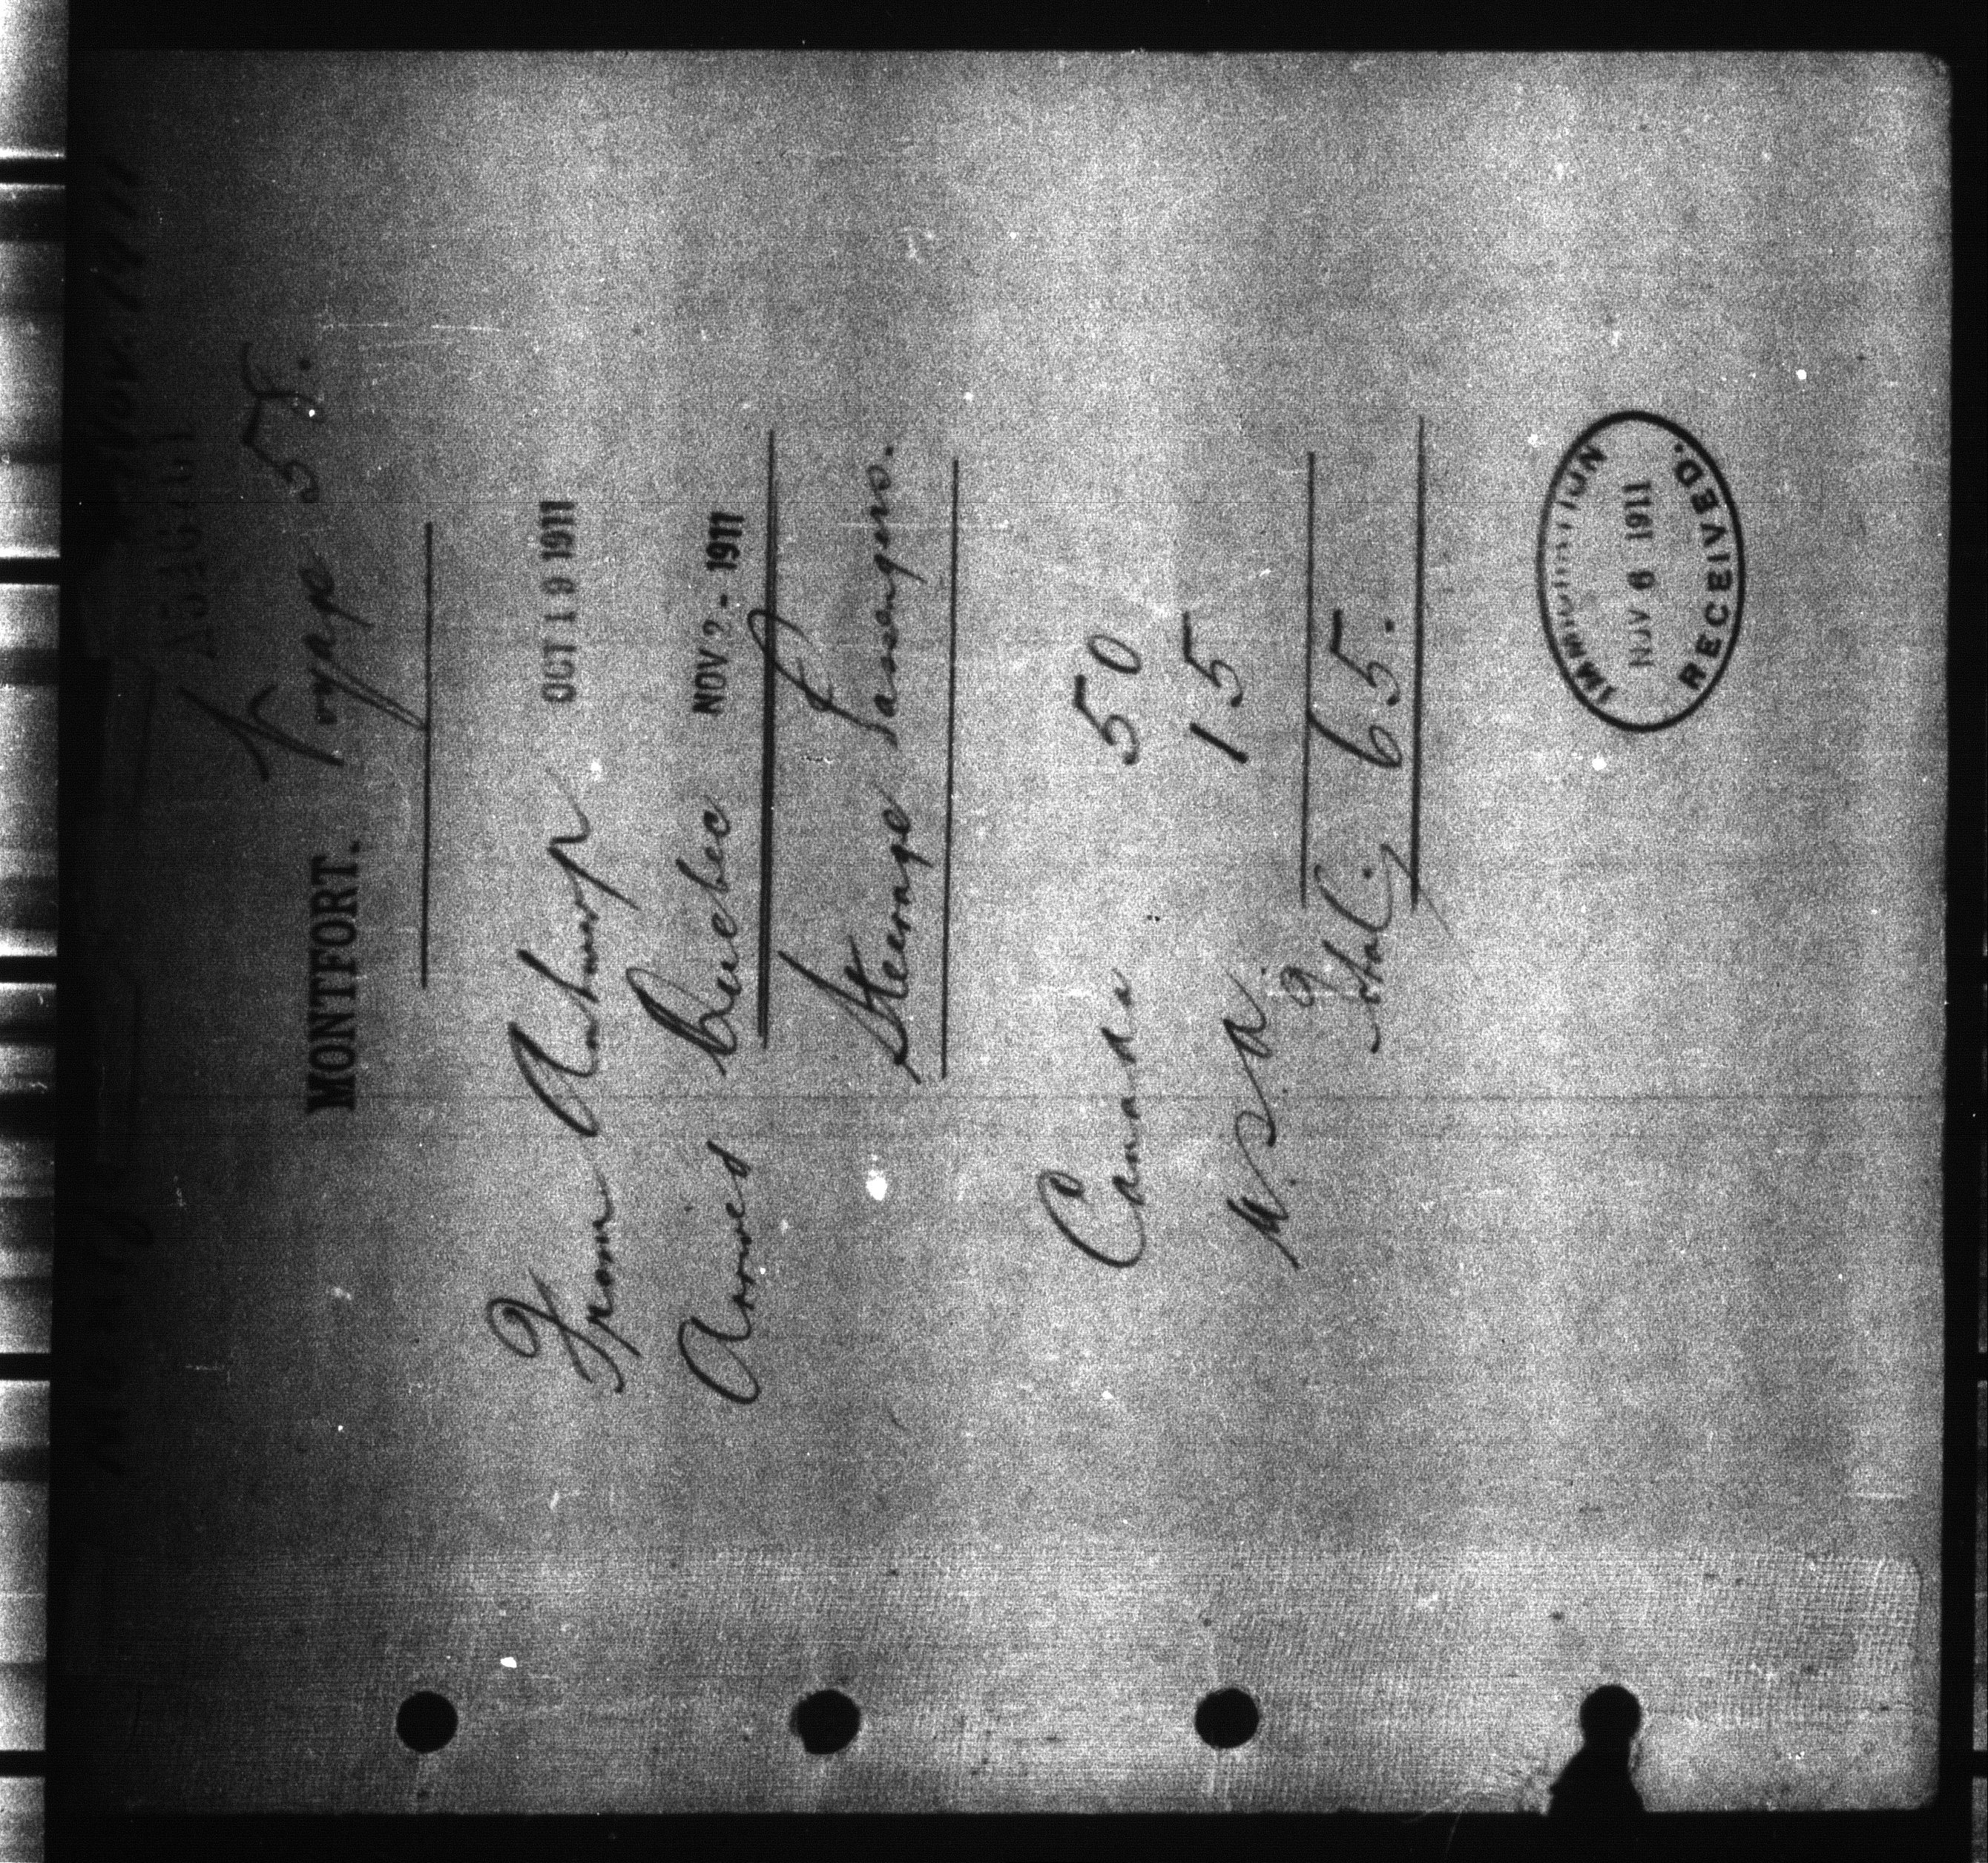 MONTFORT. Voyage 55.
From Antwerp OCT 19 1911
Arrived Quebec NOV 2 - 1911
Steerage Passengers.
Canada 50
U.S.A. 15
Total. 65.
IMMIGRATION
NOV 6 1911
RECEIVED.